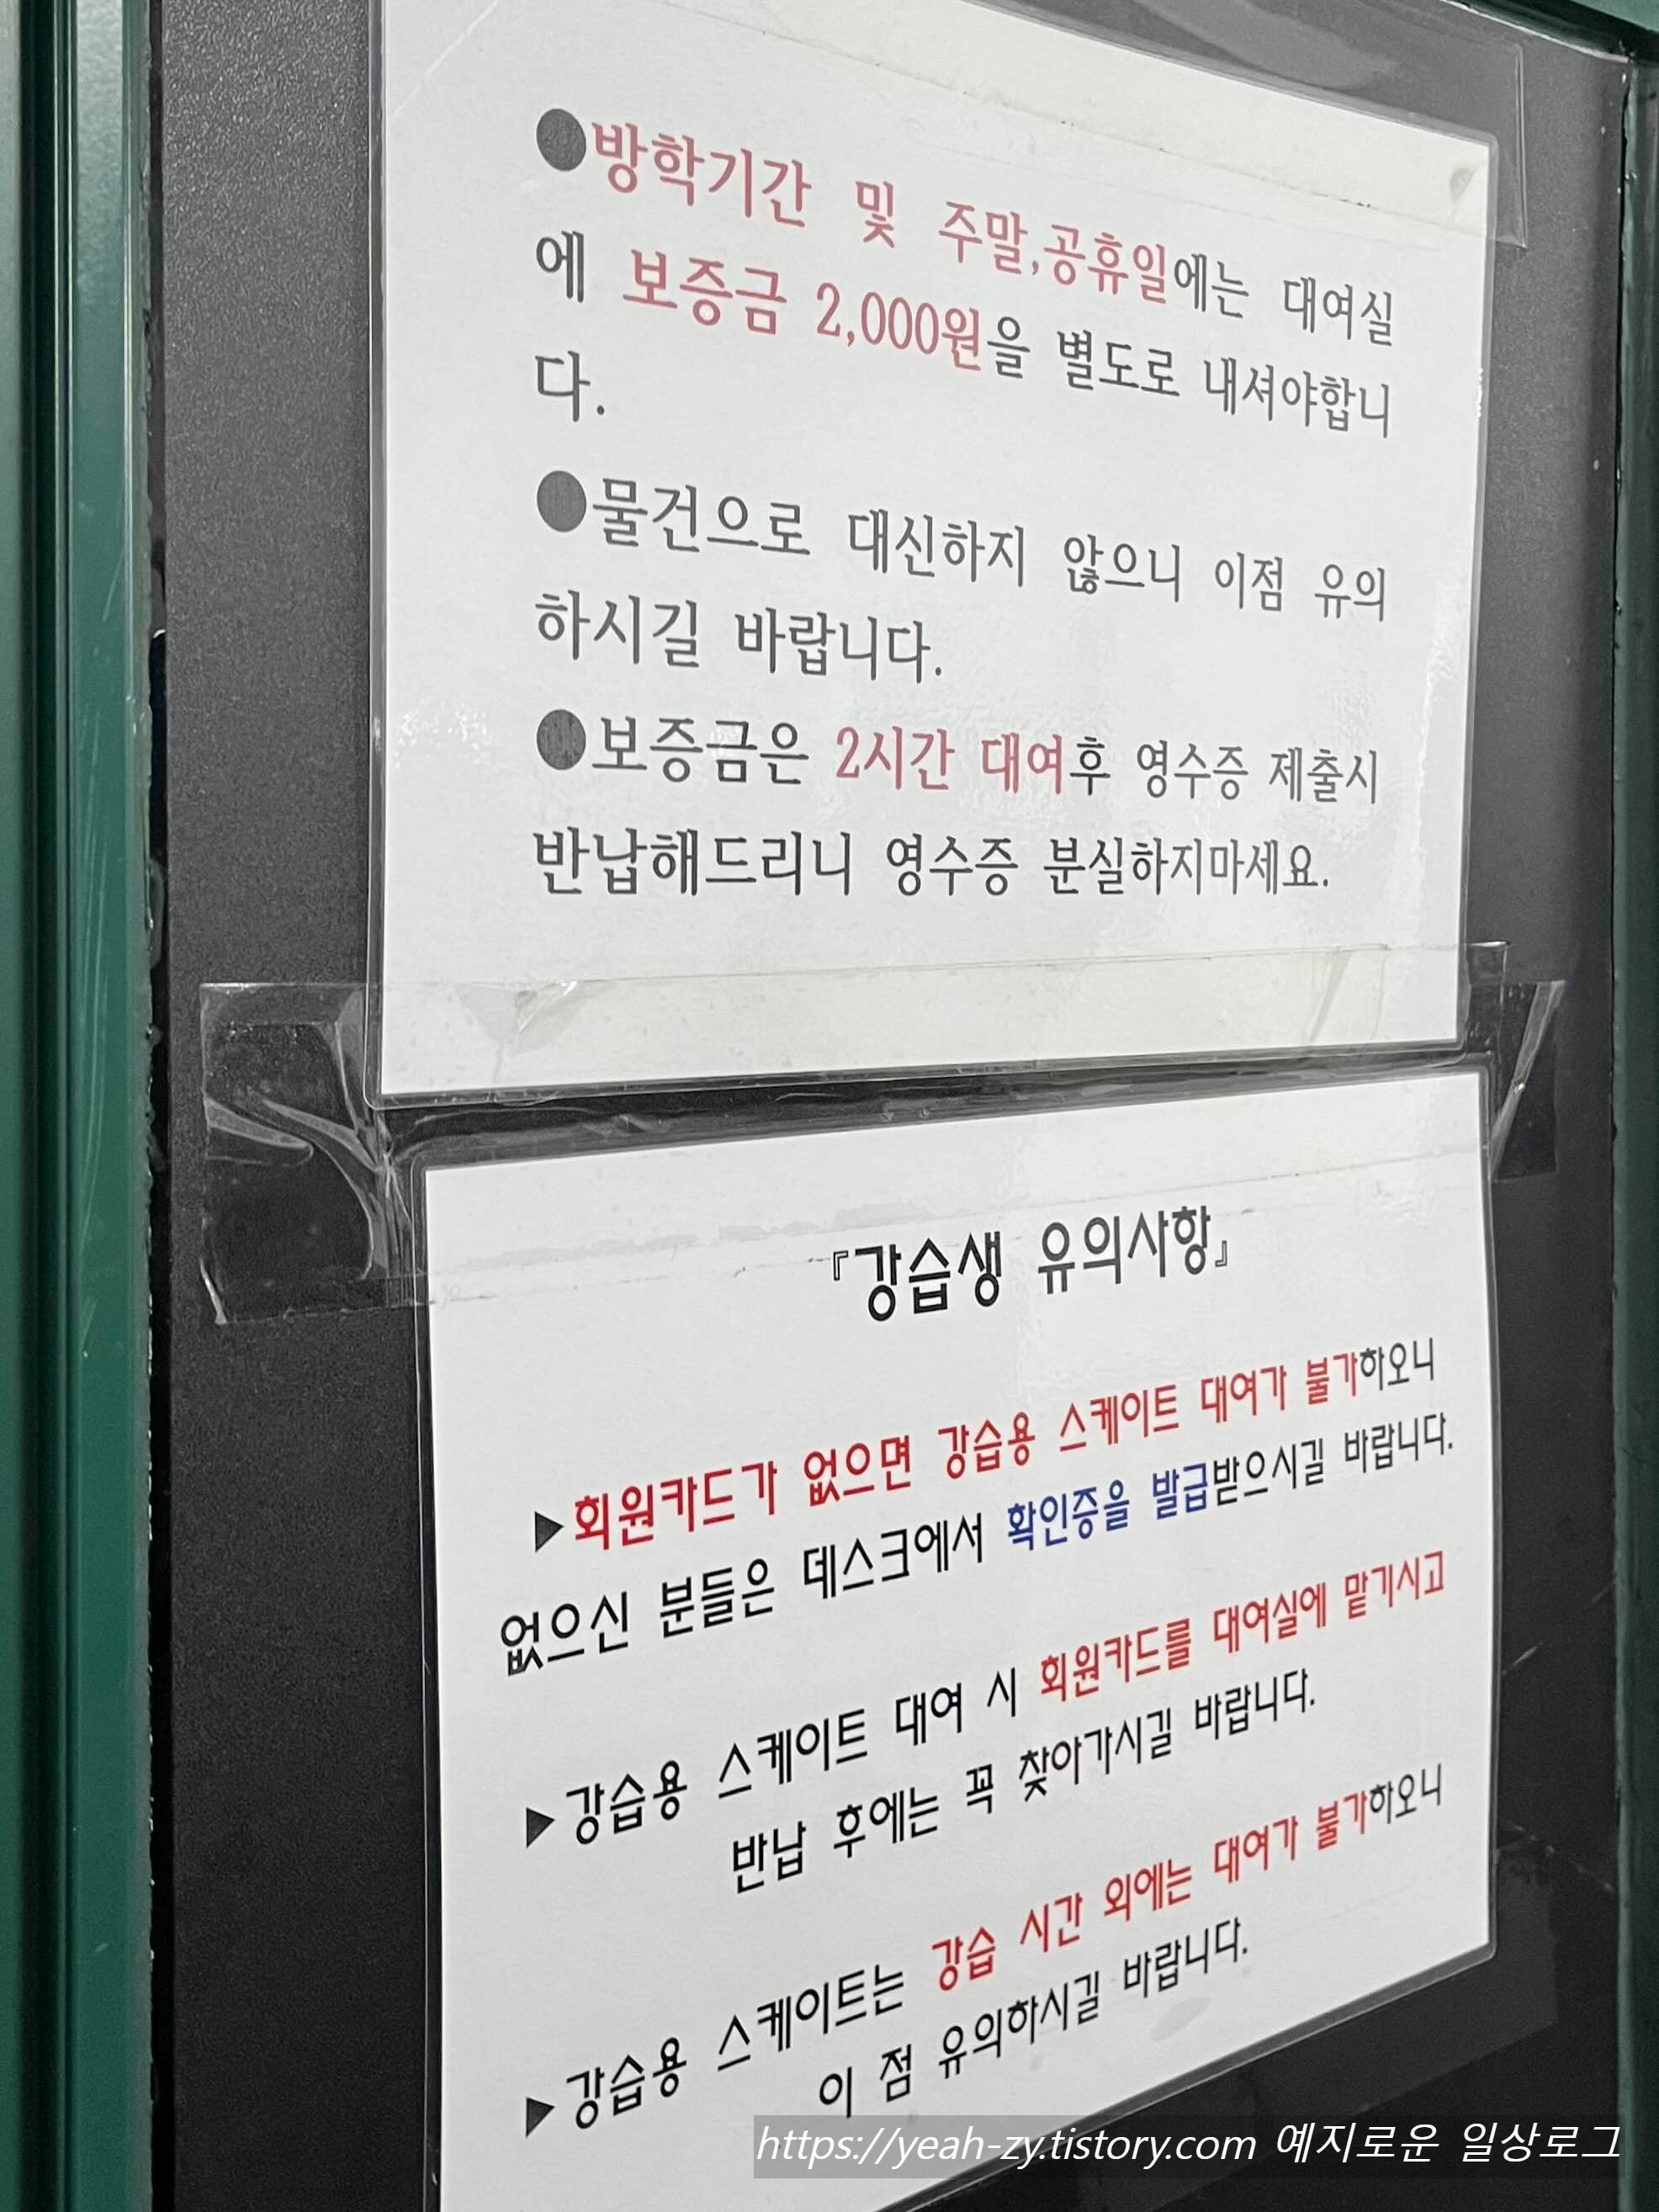 ●방학기간 및 주말,공휴일에는 대여실
에 보증금 2,000원을 별도로 내셔야합니
다.
●물건으로 대신하지 않으니 이점 유의
하시길 바랍니다.
●보증금은 2시간 대여후 영수증 제출시
반납해드리니 영수증 분실하지마세요.
『강습생 유의사항』
▶회원카드가 없으면 강습용 스케이트 대여가 불가하오니
없으신 분들은 데스크에서 확인증을 발급받으시길 바랍니다.
▶강습용 스케이트 대여 시 회원카드를 대여실에 맡기시고
반납 후에는 꼭 찾아가시길 바랍니다.
▶강습용 스케이트는 강습 시간 외에는 대여가 불가하오니
이 점 유의하시길 바랍니다.
https://yeah-zy.tistory.com 예지로운 일상로그